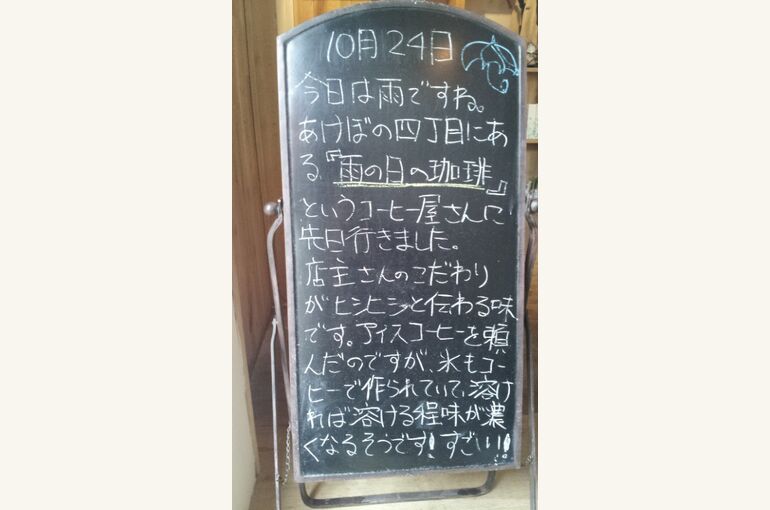 10月24日
今日は雨ですね。
あけぼの四丁目にあ
る『雨の日の珈琲』
というコーヒー屋さんに
先日行きました。
店主さんのこだわり
がヒシヒシと伝わる味
です。アイスコーヒーを頼
んだのですが、氷もコー
ヒーで作られていて、溶け
れば溶ける程味が濃
くなるそうです!すごい!!